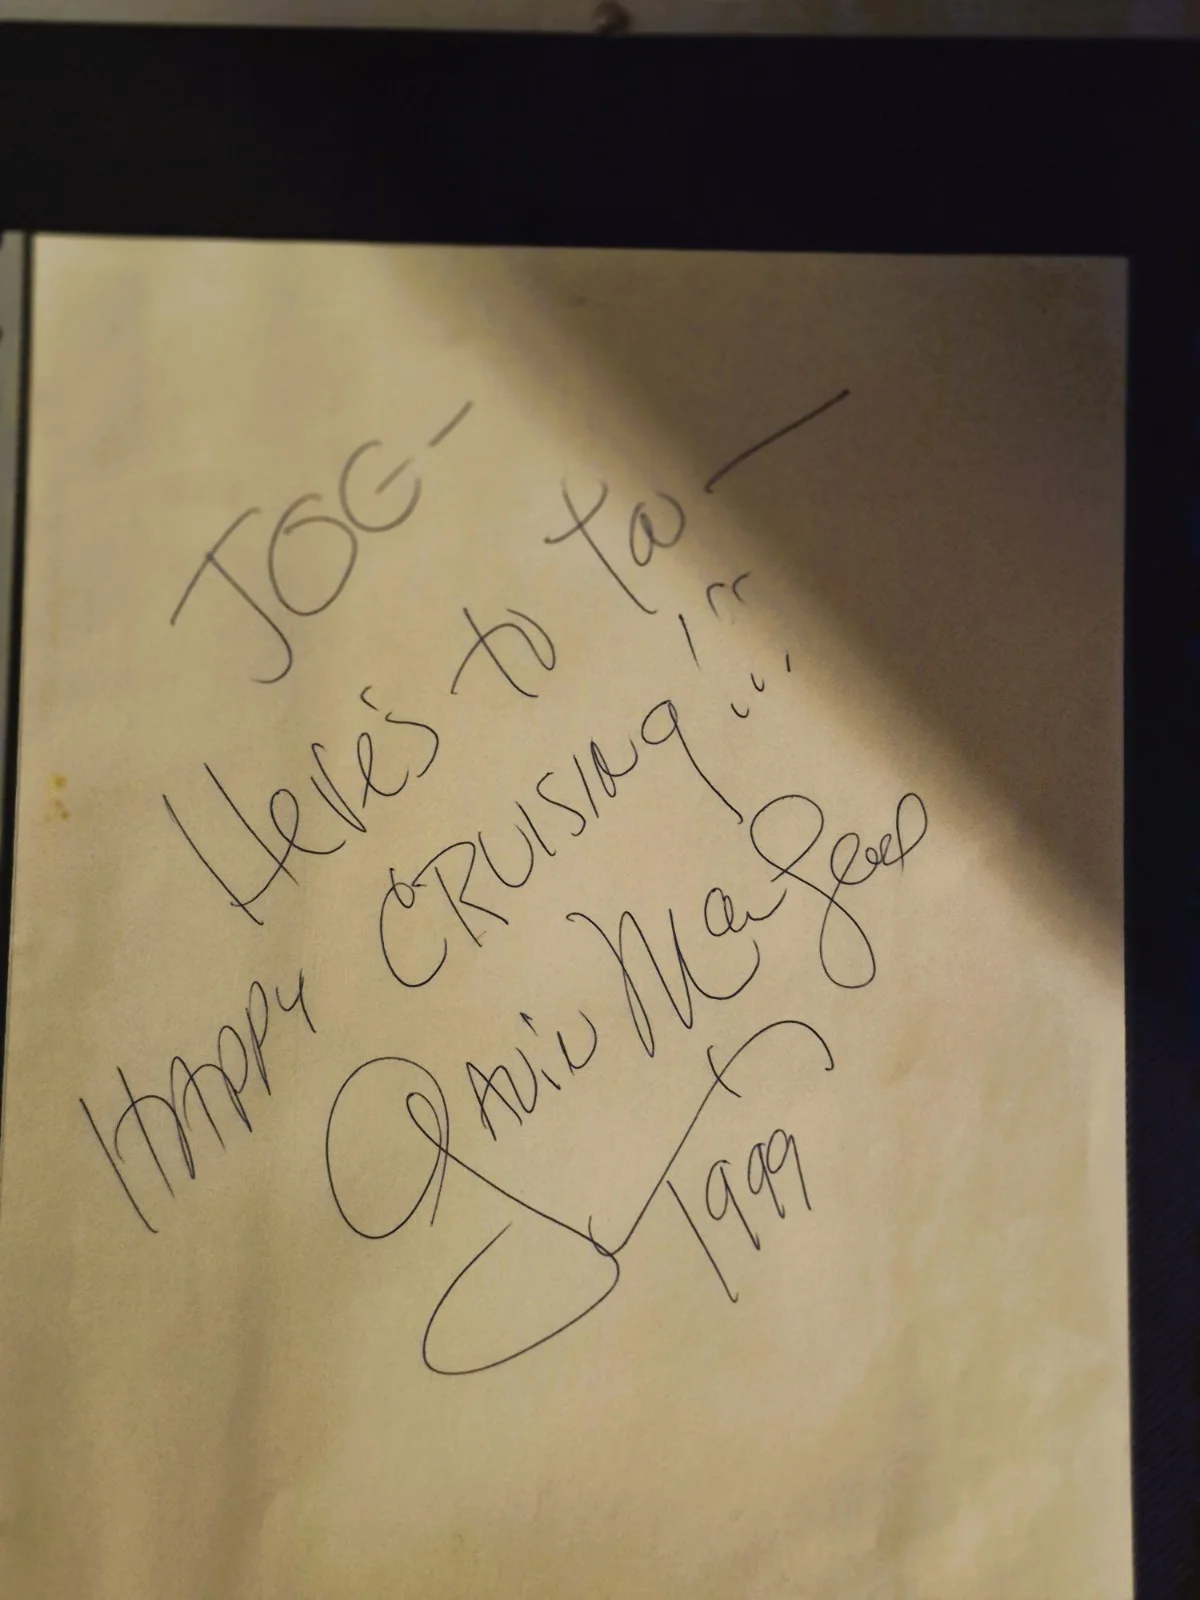 JOE-
Here's to Ya-
HAPPY CRUISING!!!
Gavin MacLeod
1999